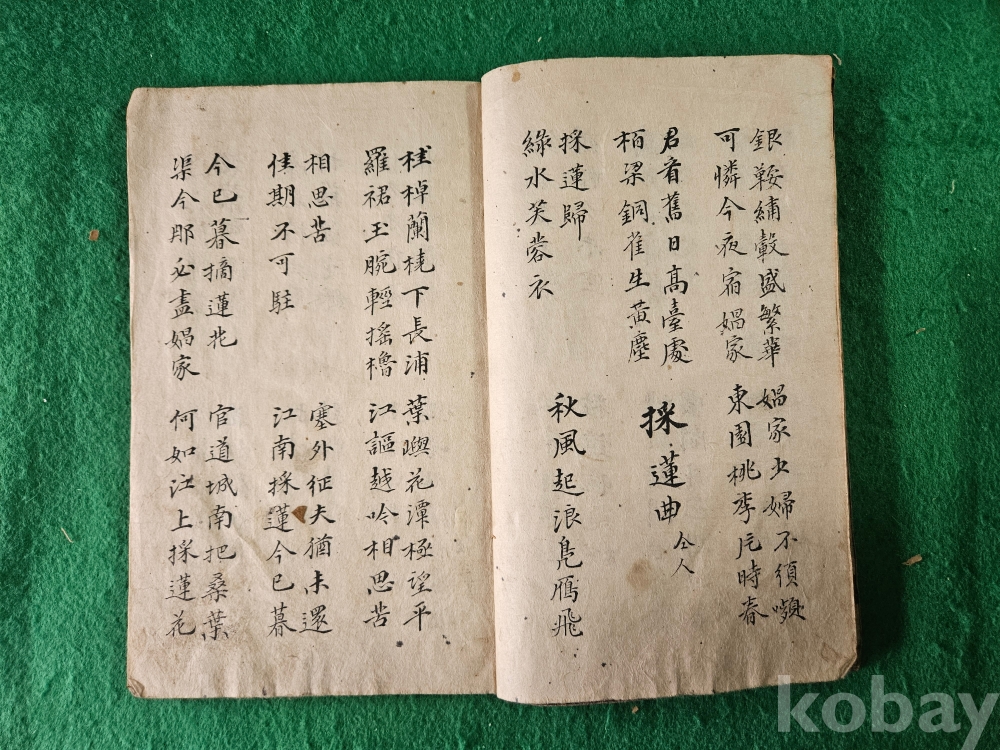 銀鞍繍轂盛繁華
可憐今夜宿娼家
娼家少婦不須嚬
東園桃李片時春
君看舊日高臺處
栢梁銅雀生黄塵
採蓮曲
仝人
採蓮歸
綠水芙蓉衣
秋風起浪鳧雁飛
桂棹蘭橈下長浦
羅裙玉腕輕搖櫓
葉嶼花潭極望平
江謳越吟相思苦
相思苦
佳期不可駐
塞外征夫猶未還
江南採蓮今已暮
今已暮摘蓮花
渠今那必盡娼家
官道城南把桑葉
何如江上採蓮花
kobay